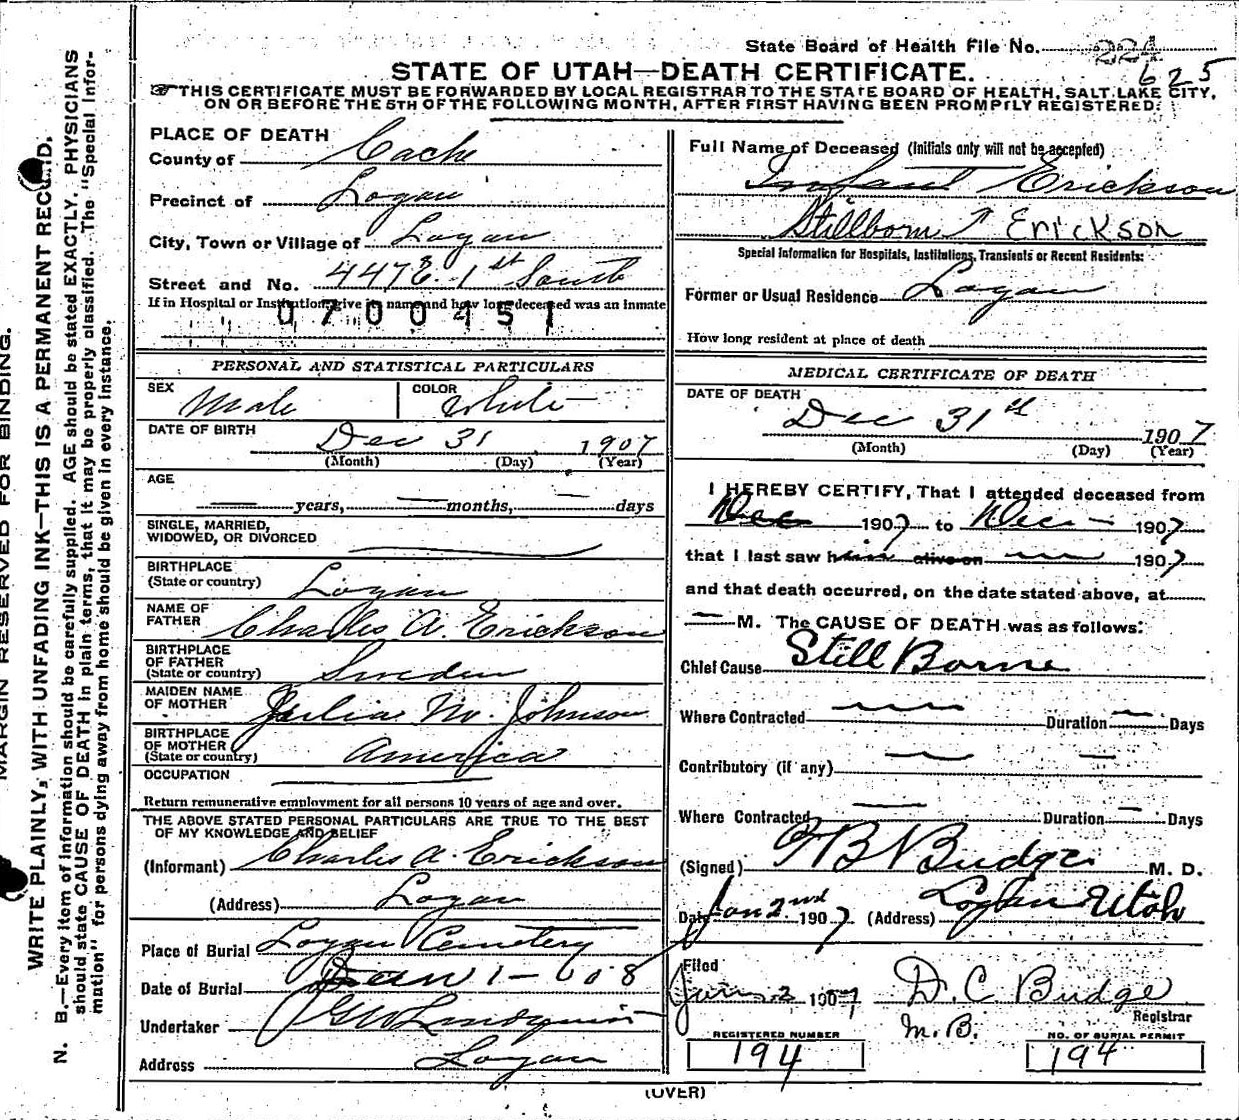 State Board of Health File No. 224
625
STATE OF UTAH—DEATH CERTIFICATE.
THIS CERTIFICATE MUST BE FORWARDED BY LOCAL REGISTRAR TO THE STATE BOARD OF HEALTH, SALT LAKE CITY,
ON OR BEFORE THE 5TH OF THE FOLLOWING MONTH, AFTER FIRST HAVING BEEN PROMPTLY REGISTERED.
MARGIN RESERVED FOR BINDING.
WRITE PLAINLY, WITH UNFADING INK—THIS IS A PERMANENT RECORD.
N. B.—Every item of information should be carefully supplied. AGE should be stated EXACTLY. PHYSICIANS
should state CAUSE OF DEATH in plain terms, that it may be properly classified. The "Special Infor-
mation" for persons dying away from home should be given in every instance.
PLACE OF DEATH
County of Cache
Precinct of Logan
City, Town or Village of Logan
Street and No. 447 E. 1st South
If in Hospital or Institution give its name and how long deceased was an inmate
0700451
PERSONAL AND STATISTICAL PARTICULARS
SEX Male COLOR White
DATE OF BIRTH Dec 31 1907
(Month) (Day) (Year)
AGE
years, months, days
SINGLE, MARRIED,
WIDOWED, OR DIVORCED
BIRTHPLACE
(State or country) Logan
NAME OF
FATHER Charles A. Erickson
BIRTHPLACE
OF FATHER
(State or country) Sweden
MAIDEN NAME
OF MOTHER Julia M. Johnson
BIRTHPLACE
OF MOTHER
(State or country) America
OCCUPATION
Return remunerative employment for all persons 10 years of age and over.
THE ABOVE STATED PERSONAL PARTICULARS ARE TRUE TO THE BEST
OF MY KNOWLEDGE AND BELIEF
(Informant) Charles A. Erickson
(Address) Logan
Place of Burial Logan Cemetery
Date of Burial Jan 1 - 08
Undertaker GW Lindquist
Address Logan
Full Name of Deceased (Initials only will not be accepted)
Infant Erickson
Stillborn Erickson
Special Information for Hospitals, Institutions, Transients or Recent Residents:
Former or Usual Residence Logan
How long resident at place of death
MEDICAL CERTIFICATE OF DEATH
DATE OF DEATH
Dec 31st 1907
(Month) (Day) (Year)
I HEREBY CERTIFY, That I attended deceased from
Dec 1907 to Dec - 1907
that I last saw him alive on 1907
and that death occurred, on the date stated above, at
M. The CAUSE OF DEATH was as follows:
Chief Cause Still Borne
Where Contracted Duration Days
Contributory (if any)
Where Contracted Duration Days
(Signed) Budge M. D.
Date Jan 2nd 1907 (Address) Logan Utah
Filed
Jan 2 1907 D. C. Budge
Registrar
M. B.
REGISTERED NUMBER
194
NO. OF BURIAL PERMIT
194
(OVER)